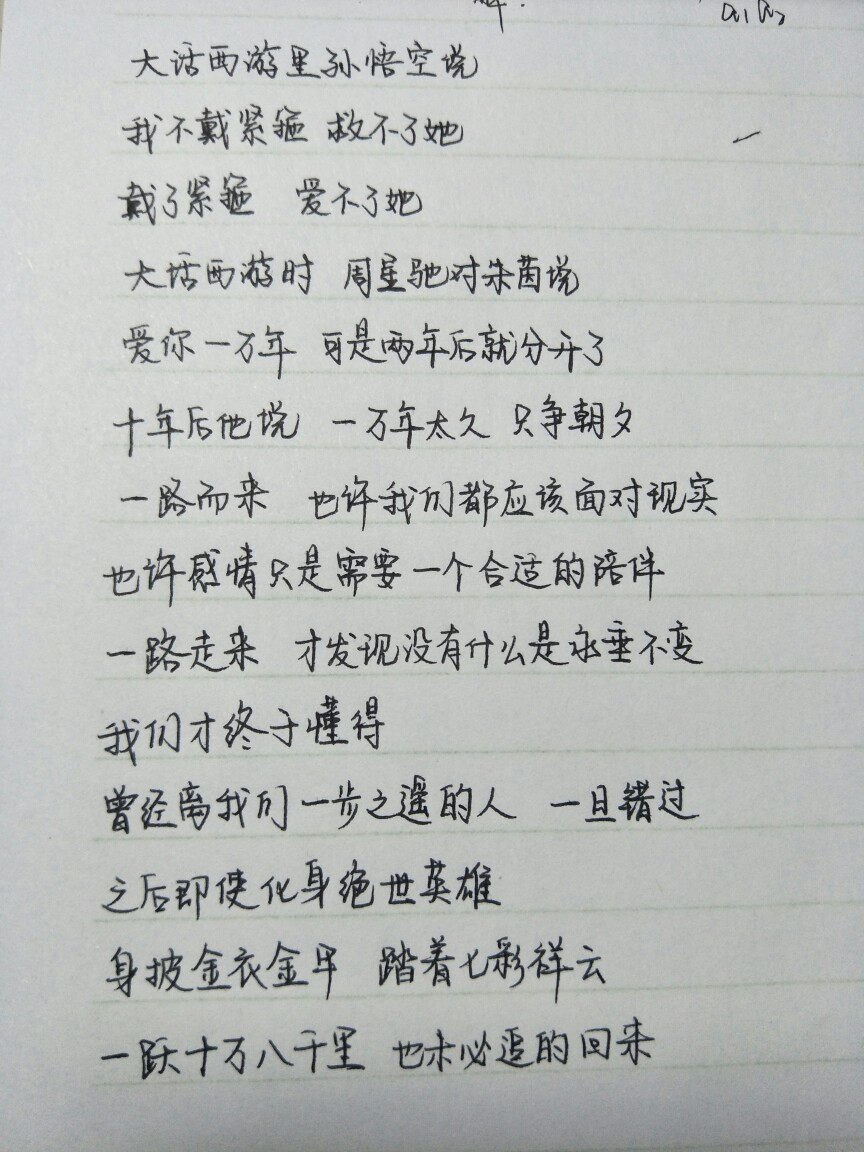 大话西游里孙悟空说
我不戴紧箍 救不了她
戴了紧箍 爱不了她
大话西游时 周星驰对朱茵说
爱你一万年 可是两年后就分开了
十年后他说 一万年太久 只争朝夕
一路而来 也许我们都应该面对现实
也许感情只是需要一个合适的陪伴
一路走来 才发现没有什么是永垂不变
我们才终于懂得
曾经离我们一步之遥的人 一旦错过
之后即使化身绝世英雄
身披金衣金甲 踏着七彩祥云
一跃十万八千里 也未必追的回来